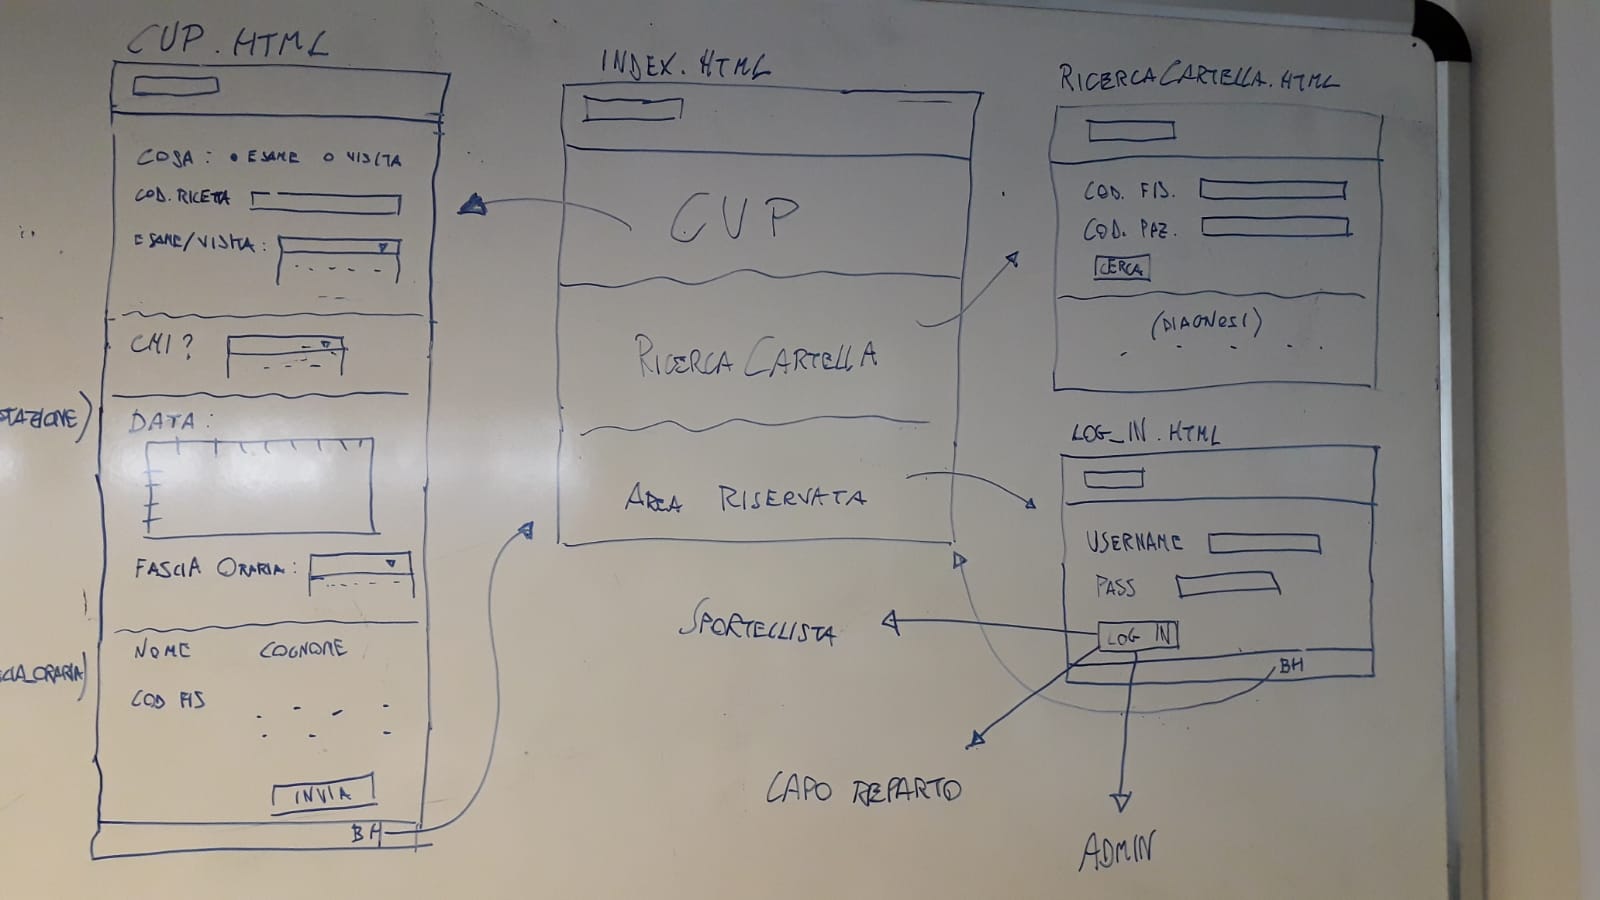 CUP.HTML
COSA: • ESAME o VISITA
COD. RICETTA
ESAME/VISITA:
CHI?
DATA:
FASCIA ORARIA:
NOME COGNOME
COD FIS
INVIA
BH
STAZIONE)
CIA_ORARIA)
INDEX.HTML
CUP
RICERCA CARTELLA
AREA RISERVATA
RICERCACARTELLA.HTML
COD. FIS.
COD. PAZ.
CERCA
(DIAGNOSI)
LOG_IN.HTML
USERNAME
PASS
LOG IN
BH
SPORTELLISTA
CAPO REPARTO
ADMIN